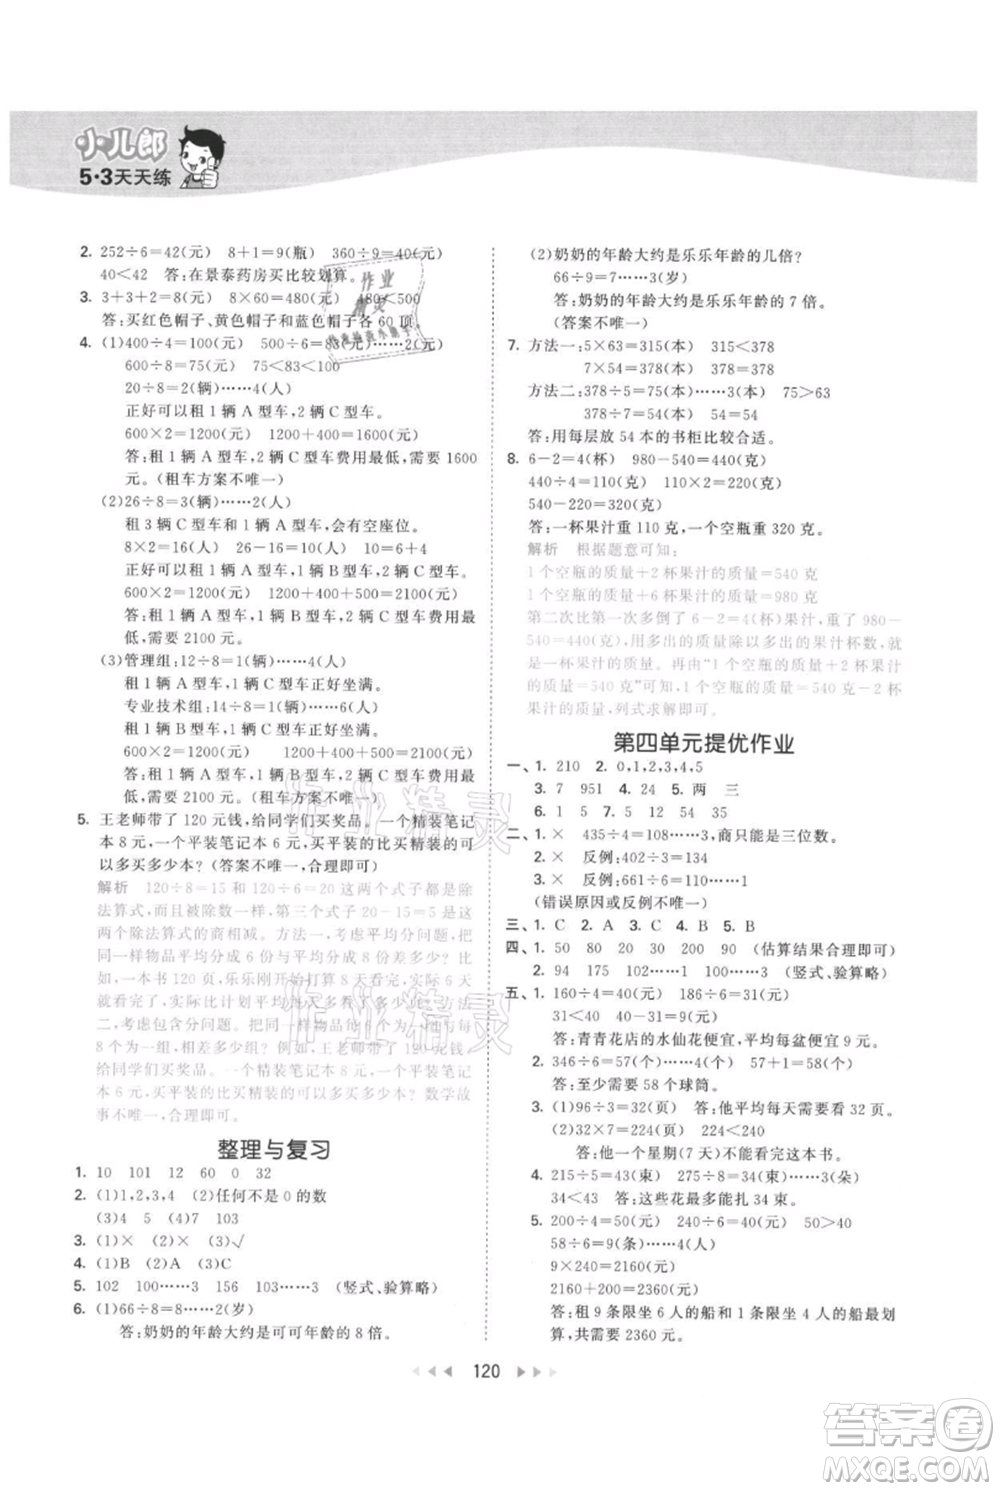 小儿郎
5·3天天练
2. 252÷6=42(元) 8+1=9(瓶) 360÷9=40(元)
40<42 答:在景泰药房买比较划算。
3. 3+3+2=8(元) 8×60=480(元) 480<500
答:买红色帽子、黄色帽子和蓝色帽子各 60 顶。
4. (1)400÷4=100(元) 500÷6=83(元)……2(元)
600÷8=75(元) 75<83<100
20÷8=2(辆)……4(人)
正好可以租 1 辆 A 型车,2 辆 C 型车。
600×2=1200(元) 1200+400=1600(元)
答:租 1 辆 A 型车,2 辆 C 型车费用最低,需要 1600
元。(租车方案不唯一)
(2)26÷8=3(辆)……2(人)
租 3 辆 C 型车和 1 辆 A 型车,会有空座位。
8×2=16(人) 26-16=10(人) 10=6+4
600×2=1200(元) 1200+500+400=2100(元)
答:租 1 辆 A 型车,1 辆 B 型车,2 辆 C 型车费用最
低,需要 2100 元。
(3)管理组:12÷8=1(辆)……4(人)
租 1 辆 A 型车,1 辆 C 型车正好坐满。
专业技术组:14÷8=1(辆)……6(人)
租 1 辆 B 型车,1 辆 C 型车正好坐满。
600×2=1200(元) 1200+500+400=2100(元)
答:租 1 辆 A 型车,1 辆 B 型车,2 辆 C 型车费用最
低,需要 2100 元。(租车方案不唯一)
5. 王老师带了 120 元钱,给同学们买奖品。一个精装笔记
本 8 元,一个平装笔记本 6 元,买平装的比买精装的可
以多买多少本?(答案不唯一,合理即可)
解析 120÷8=15 和 120÷6=20 这两个式子都是除
法算式,而且被除数一样,第三个式子 20-15=5 是这
两个除法算式的商相减。方法一:考虑平均分问题,把
同一样物品平均分成 6 份和平均分成 8 份相差多少。例
如,一本书 120 页,乐乐刚开始打算 8 天看完,实际 6 天
就看完了,实际比计划平均每天多看多少页?方法二:
考虑包含分问题。把同一样物品每 6 个为一组和每 8
个为一组,相差多少组?例如,王老师带了 120 元钱
给同学们买奖品。一个精装笔记本 8 元,一个平装笔记
本 6 元,买平装的比买精装的可以多买多少本?数学故
事不唯一,合理即可。
整理与复习
1. 10 101 12 60 0 32
2. (1)1,2,3,4 (2)任何不是 0 的数
(3)4 5 (4)7 103
3. (1)× (2)× (3)√
4. (1)B (2)A (3)C
5. 102 100……3 156 103……3 (竖式、验算略)
6. (1)66÷8=8……2(岁)
答:奶奶的年龄大约是可可年龄的 8 倍。
(2)奶奶的年龄大约是乐乐年龄的几倍?
66÷9=7……3(岁)
答:奶奶的年龄大约是乐乐年龄的 7 倍。
(答案不唯一)
7. 方法一:5×63=315(本) 315<378
7×54=378(本) 378=378
方法二:378÷5=75(本)……3(本) 75>63
378÷7=54(本) 54=54
答:用每层放 54 本的书柜比较合适。
8. 6-2=4(杯) 980-540=440(克)
440÷4=110(克) 110×2=220(克)
540-220=320(克)
答:一杯果汁重 110 克,一个空瓶重 320 克。
解析 根据题意可知:
1 个空瓶的质量+2 杯果汁的质量=540 克
1 个空瓶的质量+6 杯果汁的质量=980 克
第二次比第一次多倒了 6-2=4(杯)果汁,重了 980-
540=440(克),用多出的质量除以多出的果汁杯数,就
是一杯果汁的质量。再由“1 个空瓶的质量+2 杯果汁
的质量=540 克”可知,1 个空瓶的质量=540 克-2 杯
果汁的质量,列式求解即可。
第四单元提优作业
一、1. 210 2. 0,1,2,3,4,5
3. 7 951 4. 24 5. 两 三
6. 1 5 7. 5 12 54 35
二、1. × 435÷4=108……3,商只能是三位数。
2. × 反例:402÷3=134
3. × 反例:661÷6=110……1
(错误原因或反例不唯一)
三、1. C 2. A 3. C 4. B 5. B
四、1. 50 80 20 30 200 90 (估算结果合理即可)
2. 94 175 102……1 100……3 (竖式、验算略)
五、1. 160÷4=40(元) 186÷6=31(元)
31<40 40-31=9(元)
答:青青花店的水仙花便宜,平均每盆便宜 9 元。
2. 346÷6=57(个)……4(个) 57+1=58(个)
答:至少需要 58 个球筒。
3. (1)96÷3=32(页) 答:他平均每天需要看 32 页。
(2)32×7=224(页) 224<228
答:他一个星期(7 天)不能看完这本书。
4. 215÷5=43(束) 275÷8=34(束)……3(朵)
34<43 答:这些花最多能扎 34 束。
5. 200÷4=50(元) 240÷6=40(元) 50>40
58÷6=9(条)……4(人)
9×240=2160(元)
2160+200=2360(元)
答:租 9 条限坐 6 人的船和 1 条限坐 4 人的船最划
算,共需要 2360 元。
120
作业精灵
作业精灵
作业
精灵
答案圈
MXQE.COM